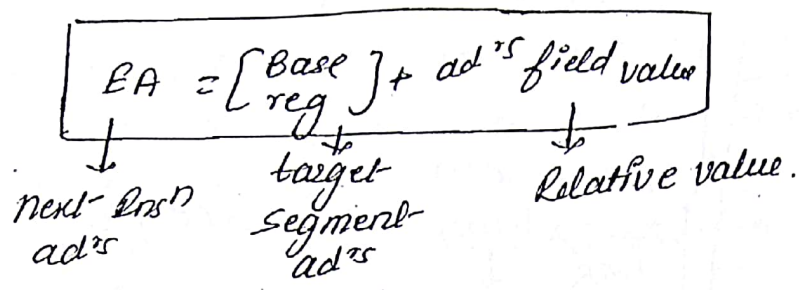 EA = [Base reg] + adrs field value
next Insn adrs
target segment adrs
Relative value.